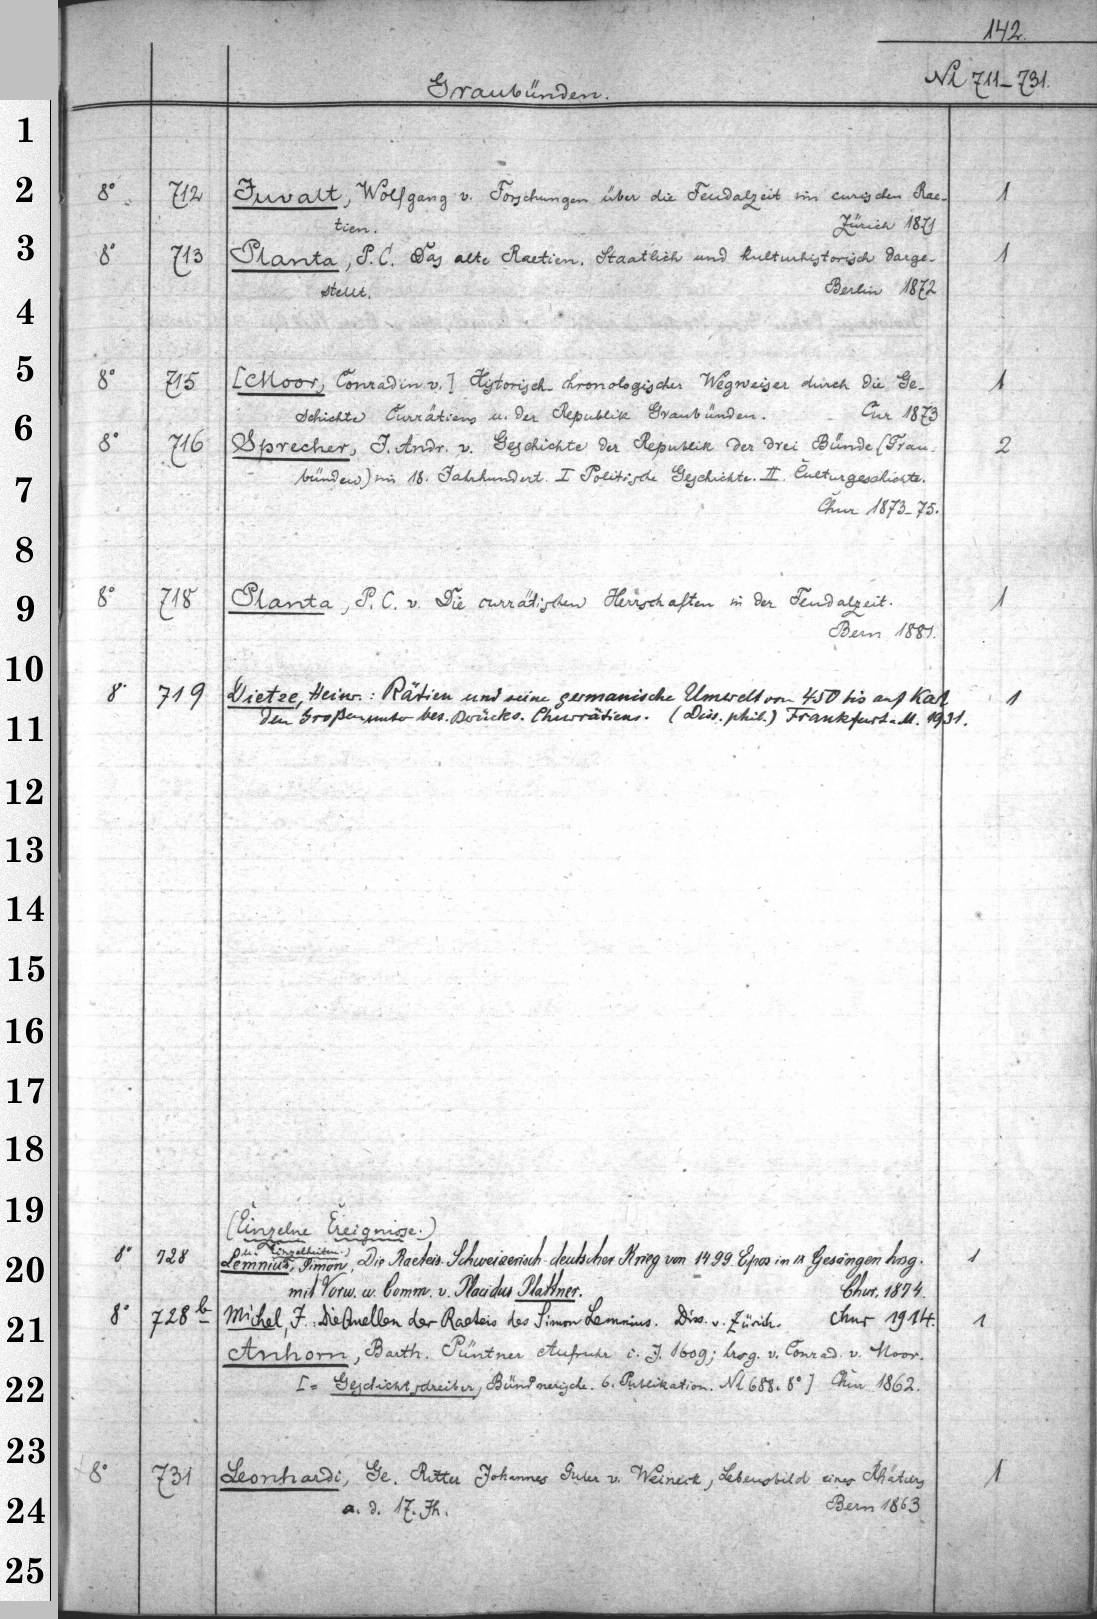 142.
Graubünden.
Nl 711-731.
1
2
3
4
5
6
7
8
9
10
11
12
13
14
15
16
17
18
19
20
21
22
23
24
25
8° 712 Juvalt, Wolfgang v. Forschungen über die Feudalzeit im curischen Rae- 1
tien. Zürich 1871
8° 713 Planta, P. C. Das alte Raetien. Staatlich und kulturhistorisch darge- 1
stellt. Berlin 1872
8° 715 [Moor, Conradin v.] Historisch-chronologischer Wegweiser durch die Ge- 1
schichte Currätiens u. der Republik Graubünden. Cur 1873
8° 716 Sprecher, J. Andr. v. Geschichte der Republik der drei Bünde (Grau- 2
bünden) im 18. Jahrhundert. I Politische Geschichte. II. Culturgeschichte.
Chur 1873-75.
8° 718 Planta, P. C. v. Die currätischen Herrschaften in der Feudalzeit. 1
Bern 1881.
8° 719 Dietze, Heinr.: Rätien und seine germanische Umwelt von 450 bis auf Karl 1
den Großen unter bes. Berücks. Churrätiens. (Diss. phil.) Frankfurt a. M. 1931.
(Einzelne Ereignisse.)
u. Einzelheiten.)
8° 728 Lemnius, Simon, Die Raeteis. Schweizerisch-deutscher Krieg von 1499 Epos in IX Gesängen hrsg. 1
mit Vorw. u. Comm. v. Placidus Plattner. Chur. 1874.
8° 728 b Michel, J.: Die Quellen der Raeteis des Simon Lemnius. Diss. v. Zürich. Chur 1914. 1
Anhorn, Barth. Püntner Aufruhr i. J. 1609; hrsg. v. Conrad. v. Moor.
[= Geschichtschreiber, Bündnerische. 6. Publikation. Nl 688. 8°] Chur 1862.
8° 731 Leonhardi, Ge. Ritter Johannes Guler v. Weineck, Lebensbild eines Rhätiers 1
a. d. 17. Jh. Bern 1863